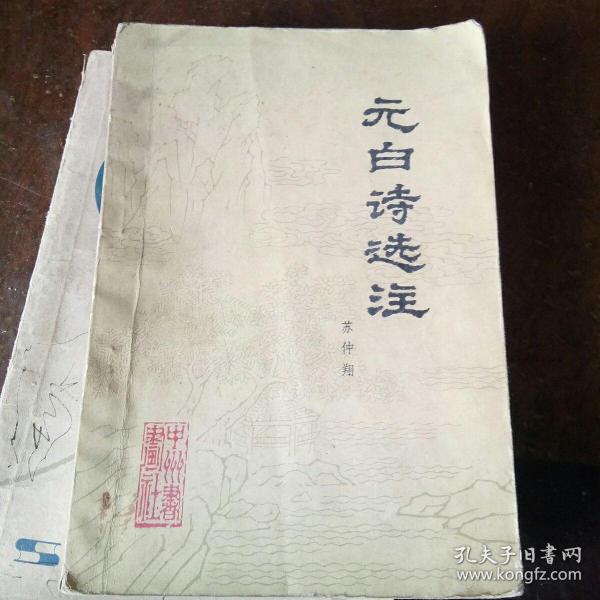 元白诗选注
苏仲翔
中州書
畫社
孔夫子旧書网
www.kongfz.com